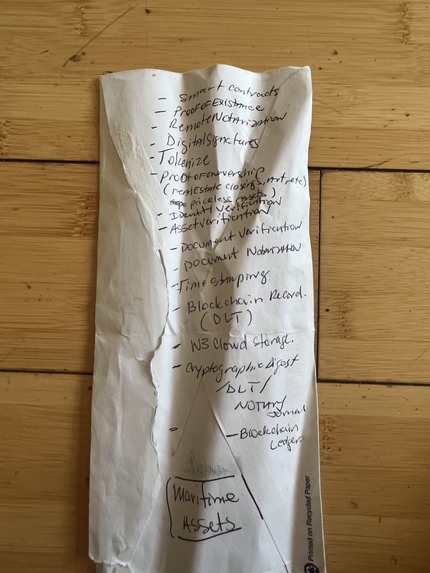 - Smart contracts
- Proof of Existance
- Remote Notarization
- Digital Signatures
- Tokenize
- Proof of ownership
(real estate closings, art, etc)
priceless assets)
- Identity verification
- Asset verification
- Document Verification
- Document Notarization
- Time stamping
- Blockchain Record.
(DLT)
- W3 Cloud Storage.
- Cryptographic Digest
/DLT/
NOTARY
Journal
-
- Blockchain
Ledger
Maritime
Assets
Printed on Recycled Paper